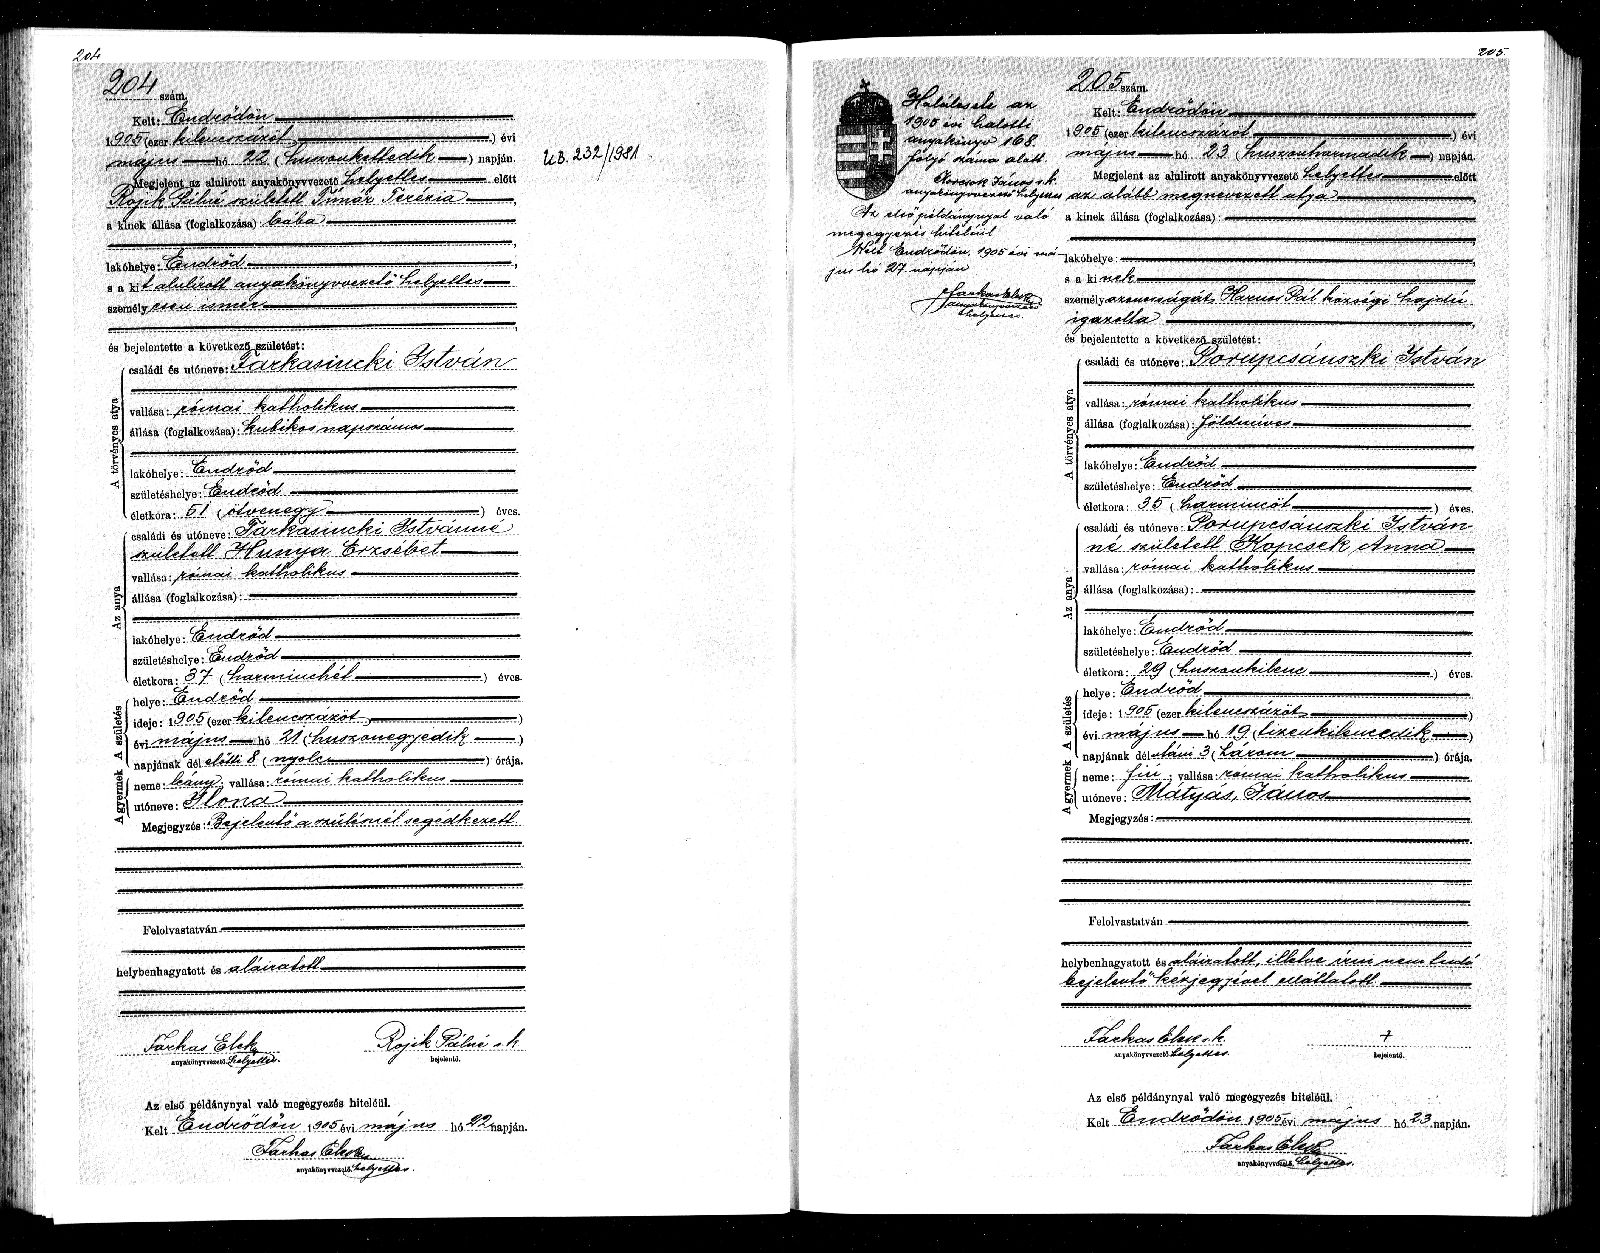 204
204 szám.
Kelt: Endrődön
1905 (ezer kilencszázöt ) évi
május hó 22 (huszonkettedik ) napján.
Megjelent az alulirott anyakönyvvezető helyettes előtt
Rojik Pálné született Timár Terézia,
a kinek állása (foglalkozása): bába
lakóhelye: Endrőd
s a kit alulirott anyakönyvvezető helyettes
személyesen ismer
és bejelentette a következő születést:
A törvényes atya
családi és utóneve: Farkasincki István
vallása: római katholikus
állása (foglalkozása): kubikos napszámos
lakóhelye: Endrőd
születéshelye: Endrőd
életkora: 51 (ötvenegy ) éves.
Az anya
családi és utóneve: Farkasincki Istvánné
született Hunya Erzsébet
vallása: római katholikus
állása (foglalkozása):
lakóhelye: Endrőd
születéshelye: Endrőd
életkora: 37 (harminchét ) éves.
A születés
helye: Endrőd
ideje: 1905 (ezer kilencszázöt )
évi május hó 21 (huszonegyedik )
napjának délelőtti 8 (nyolc ) órája.
A gyermek
neme: leány; vallása: római katholikus
utóneve: Ilona
Megjegyzés: Bejelentő a szülésnél segédkezett
Felolvastatván
helybenhagyatott és aláiratott
Farkas Elek Rojik Pálné s. k.
anyakönyvvezető helyettes bejelentő.
Az első példánynyal való megegyezés hiteléül.
Kelt Endrődön 1905 évi május hó 22 napján.
Farkas Elek
anyakönyvvezető helyettes.
U.B. 232/1981
205
Halálesete az
1905 évi halotti
anyakönyv 168.
folyó száma alatt.
Korcsok János s.k.
anyakönyvvezető helyettes
Az első példánynyal való
megegyezés hiteléül
Kelt Endrődön, 1905 évi má-
jus hó 27. napján
Farkas Elek
anyakönyvvezető
helyettes.
205 szám.
Kelt: Endrődön
1905 (ezer kilencszázöt ) évi
május hó 23 (huszonharmadik ) napján.
Megjelent az alulirott anyakönyvvezető helyettes előtt
az alább megnevezett atya
a kinek állása (foglalkozása):
lakóhelye:
s a kinek
személyazonosságát Pál községi hajdú
igazolta
és bejelentette a következő születést:
A törvényes atya
családi és utóneve: Porupcsánszki István
vallása: római katholikus
állása (foglalkozása): földmíves
lakóhelye: Endrőd
születéshelye: Endrőd
életkora: 35 (harmincöt ) éves.
Az anya
családi és utóneve: Porupcsánszki István
né született Kopcsek Anna
vallása: római katholikus
állása (foglalkozása):
lakóhelye: Endrőd
születéshelye: Endrőd
életkora: 29 (huszonkilenc ) éves.
A születés
helye: Endrőd
ideje: 1905 (ezer kilencszázöt )
évi május hó 19 (tizenkilencedik )
napjának délutáni 3 (három ) órája.
A gyermek
neme: fiu; vallása: római katholikus
utóneve: Mátyás, János
Megjegyzés:
Felolvastatván
helybenhagyatott és aláiratott, illetve írni nem tudó
bejelentő kézjegyével elláttatott
Farkas Elek s. k. +
anyakönyvvezető helyettes bejelentő.
Az első példánynyal való megegyezés hiteléül.
Kelt Endrődön 1905 évi május hó 23. napján.
Farkas Elek
anyakönyvvezető helyettes.